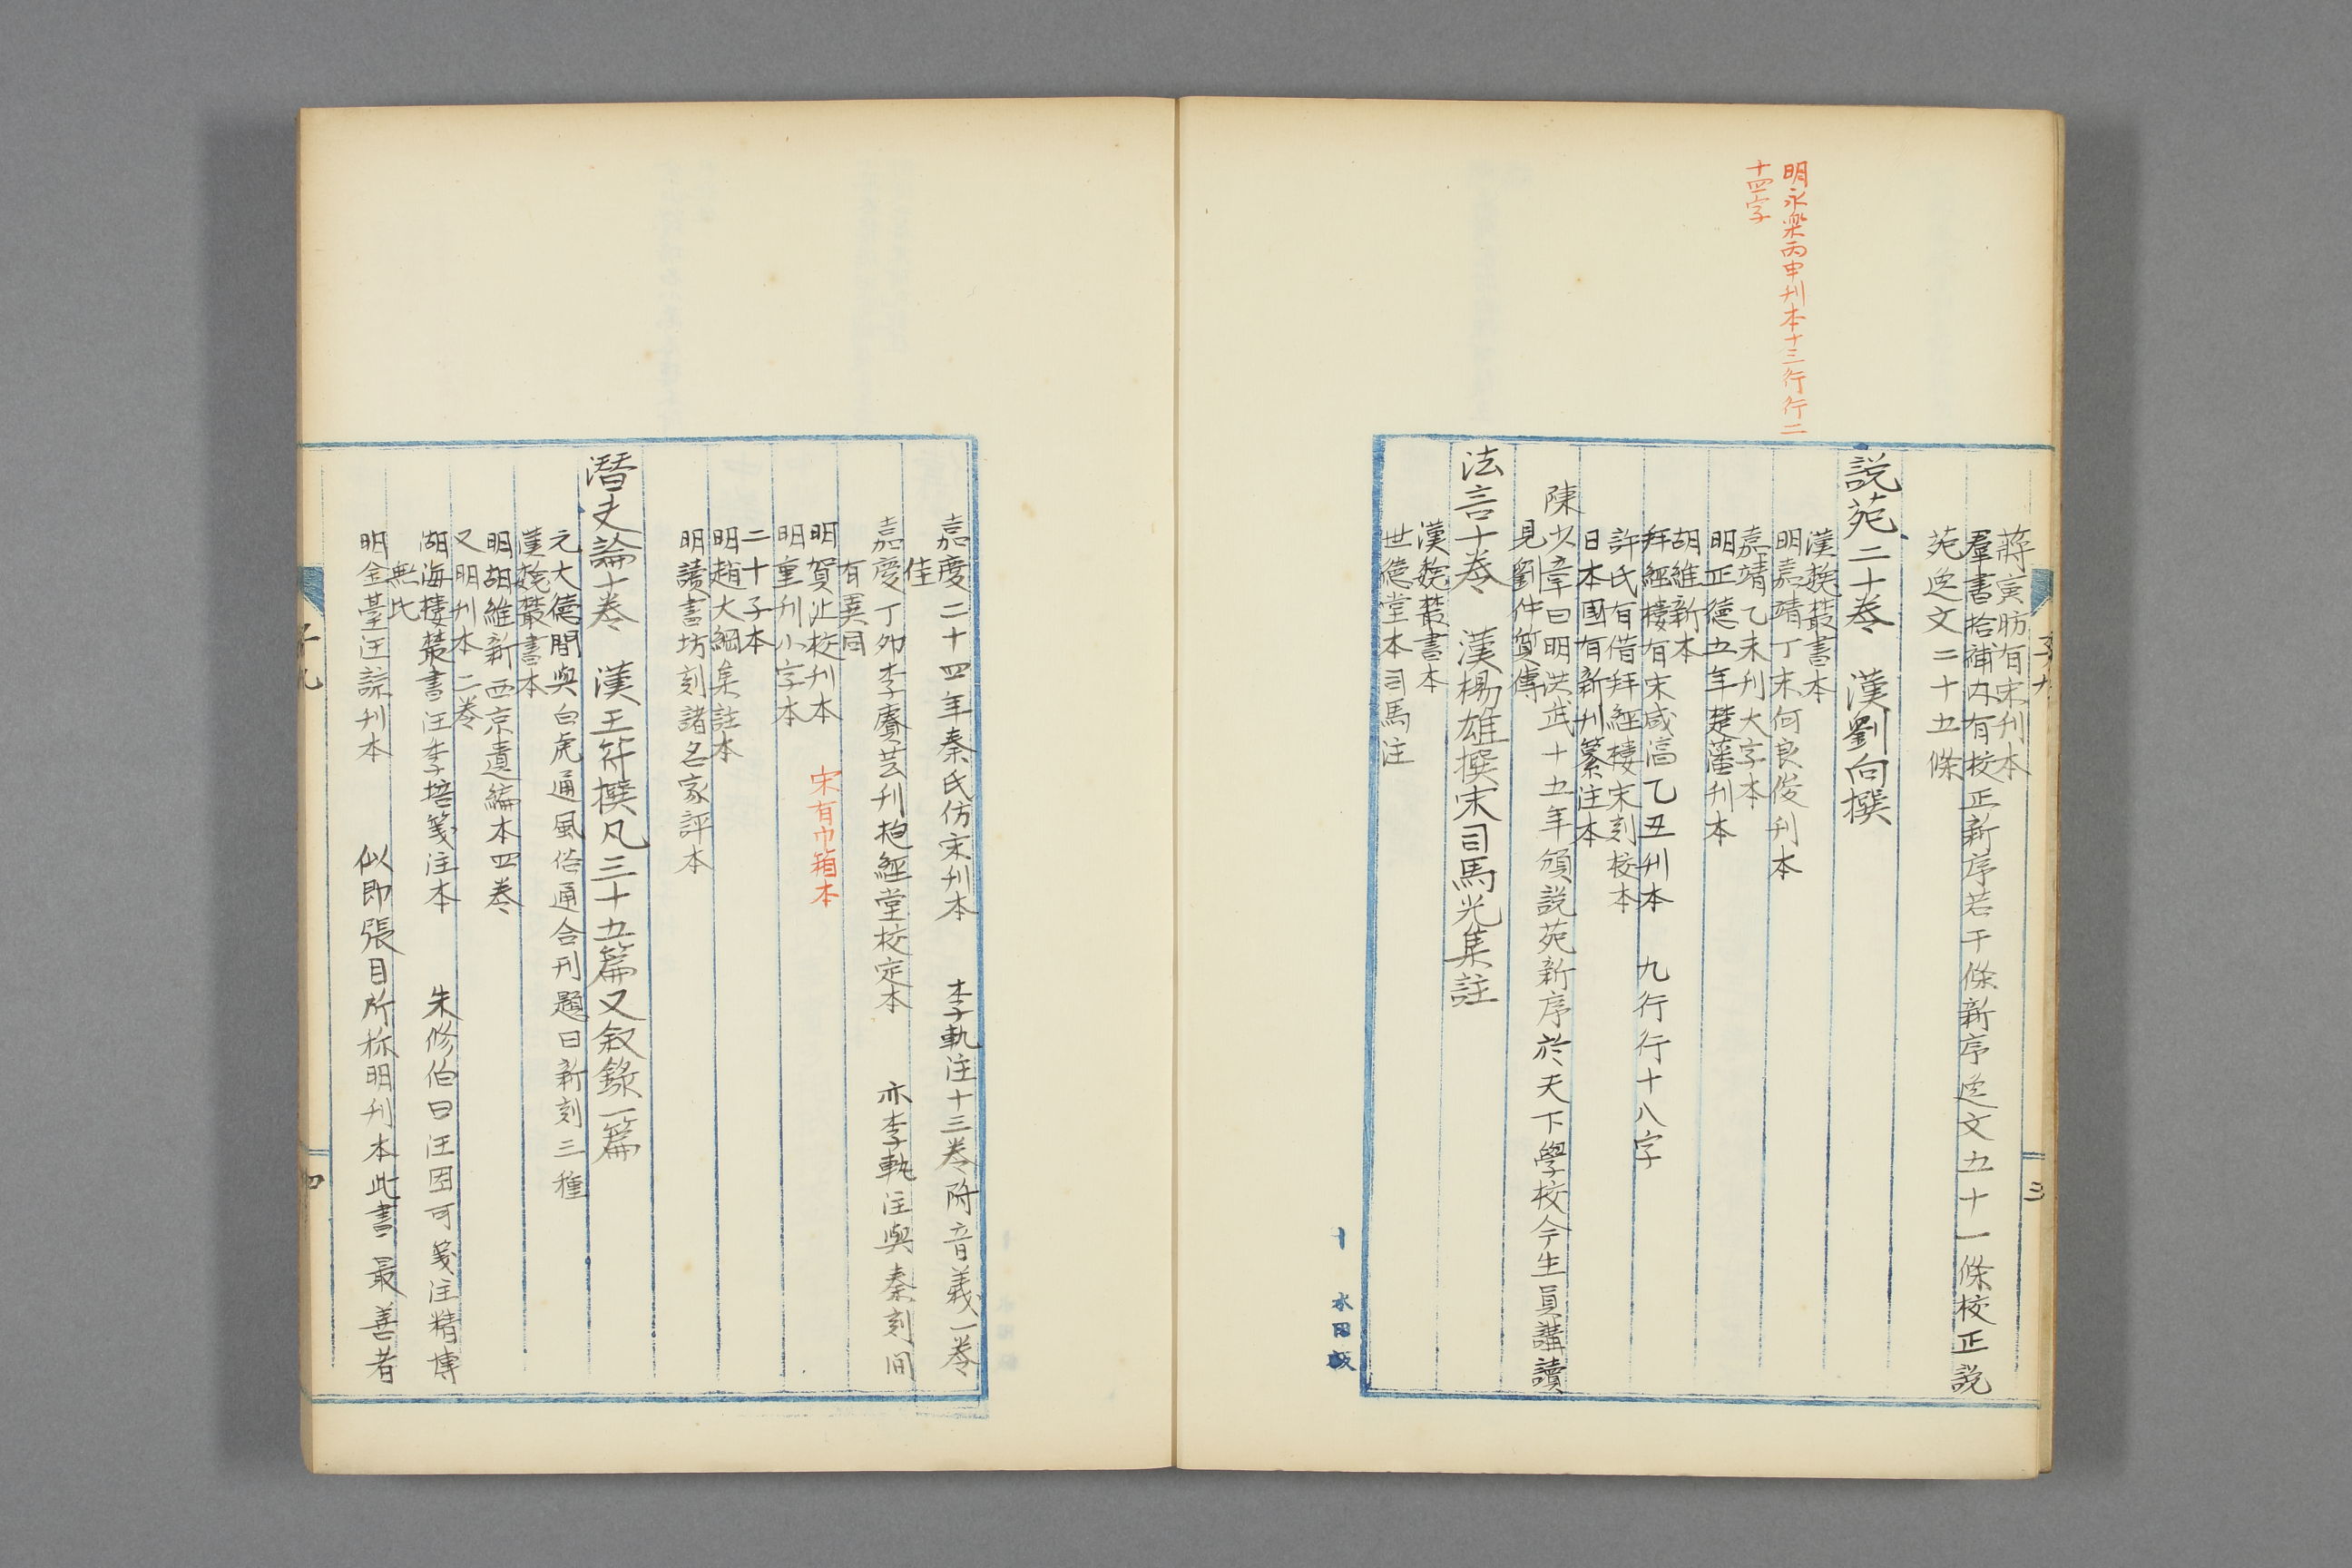 蔣寅昉有宋刊本
羣書拾補內有校正新序若干條新序逸文五十一條校正說
苑逸文二十五條
説苑二十卷　漢劉向撰
明永樂丙申刊本十三行行二
十四字
漢魏叢書本
明嘉靖丁未何良俊刊本
嘉靖乙未刊大字本
明正德五年楚藩刊本
胡維新本
拜經樓有宋咸淳乙丑刊本　九行行十八字
許氏有借拜經樓宋刻校本
日本國有新刊纂注本
陳少章曰明洪武十五年頒説苑新序於天下學校令生員講讀
見劉仲質傳
法言十卷　漢楊雄撰宋司馬光集註
漢魏叢書本
世德堂本司馬注
十
水田版
嘉慶二十四年秦氏仿宋刊本　李軌注十三卷附音義一卷
佳
嘉慶丁卯李賡芸刊抱經堂校定本　亦李軌注與秦刻間
有異同
明賀沚校刊本　宋有巾箱本
明重刊小字本
二十子本
明趙大綱集註本
明讀書坊刻諸名家評本
潛夫論十卷　漢王符撰凡三十五篇又叙錄一篇
元大德間與白虎通風俗通合刊題曰新刻三種
漢魏叢書本
明胡維新西京遺編本四卷
又明刊本二卷
湖海樓叢書汪季培箋注本　朱修伯曰汪因可箋注精博
無比
明金臺汪諒刊本　似即張目所称明刊本此書最善者
子九
四
三